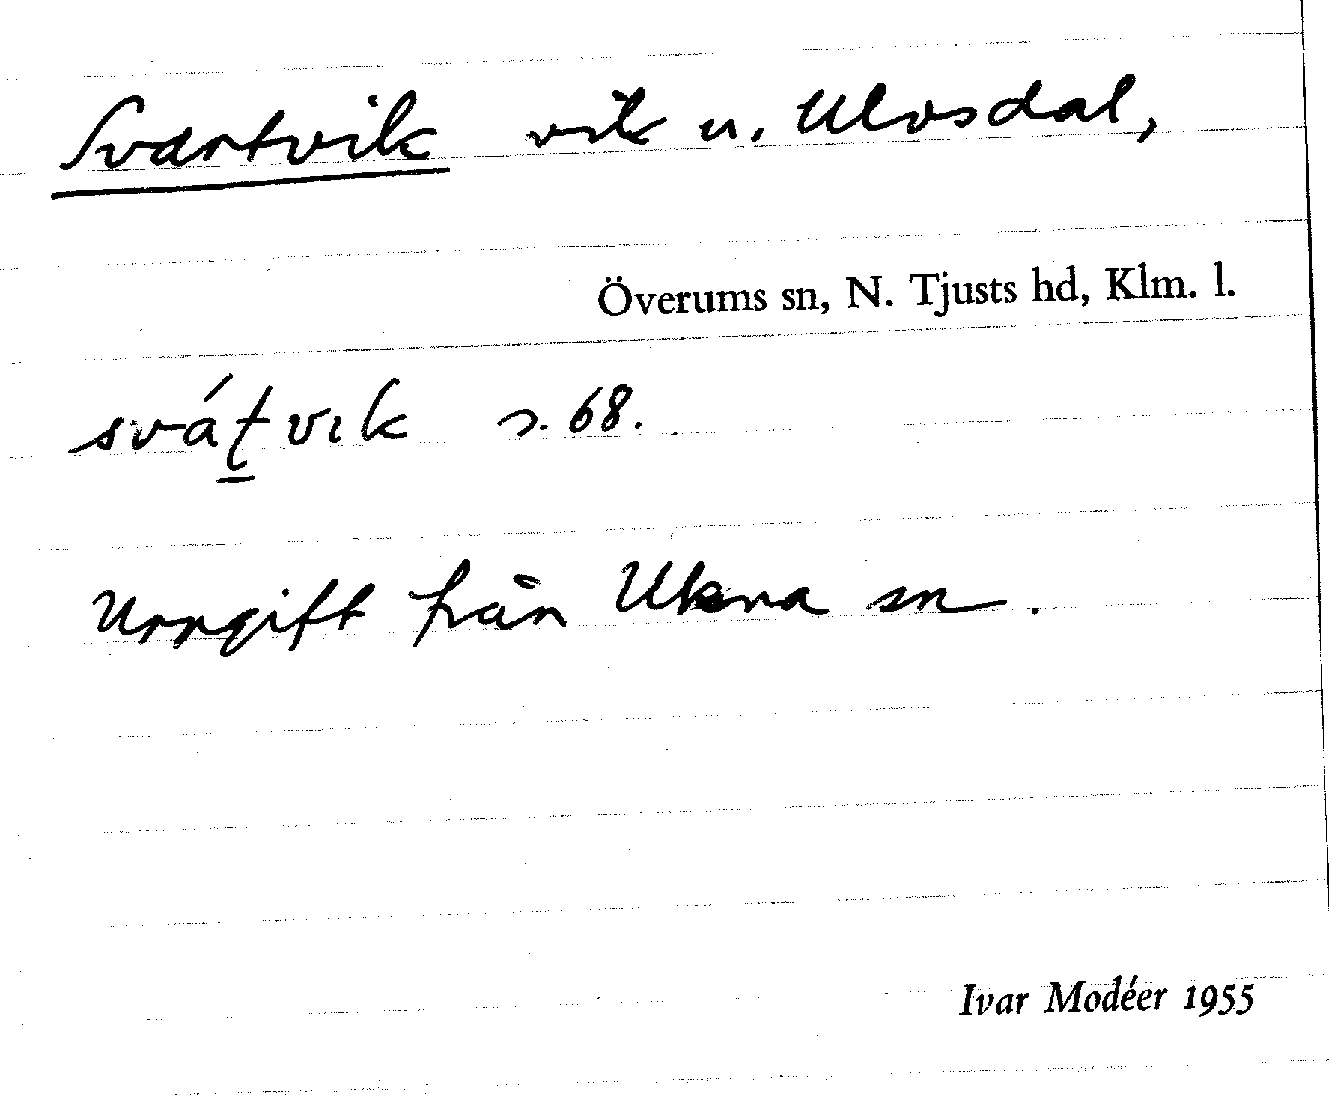 Svartvik vik u. Ulvsdal,
Överums sn, N. Tjusts hd, Klm. l.
svát̠vık s. 68.
Uppgift från Ukna sn.
Ivar Modéer 1955